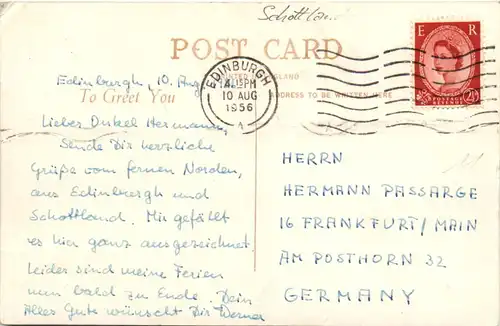 Schottland
E R
POST CARD
PRINTED IN ENGLAND
EDINBURGH
4.15 PM
10 AUG
1956
A
POSTAGE REVENUE
2½D
Edinburgh, 10. Aug
To Greet You
ADDRESS TO BE WRITTEN HERE
Lieber Onkel Hermann,
Sende Dir herzliche
Grüße vom fernen Norden,
aus Edinburgh und
Schottland. Mir gefällt
es hier ganz ausgezeichnet.
Leider sind meine Ferien
nun bald zu Ende. Dein
Alles Gute wünscht Dir Werner
HERRN
HERMANN PASSARGE
16 FRANKFURT/MAIN
AM POSTHORN 32
GERMANY